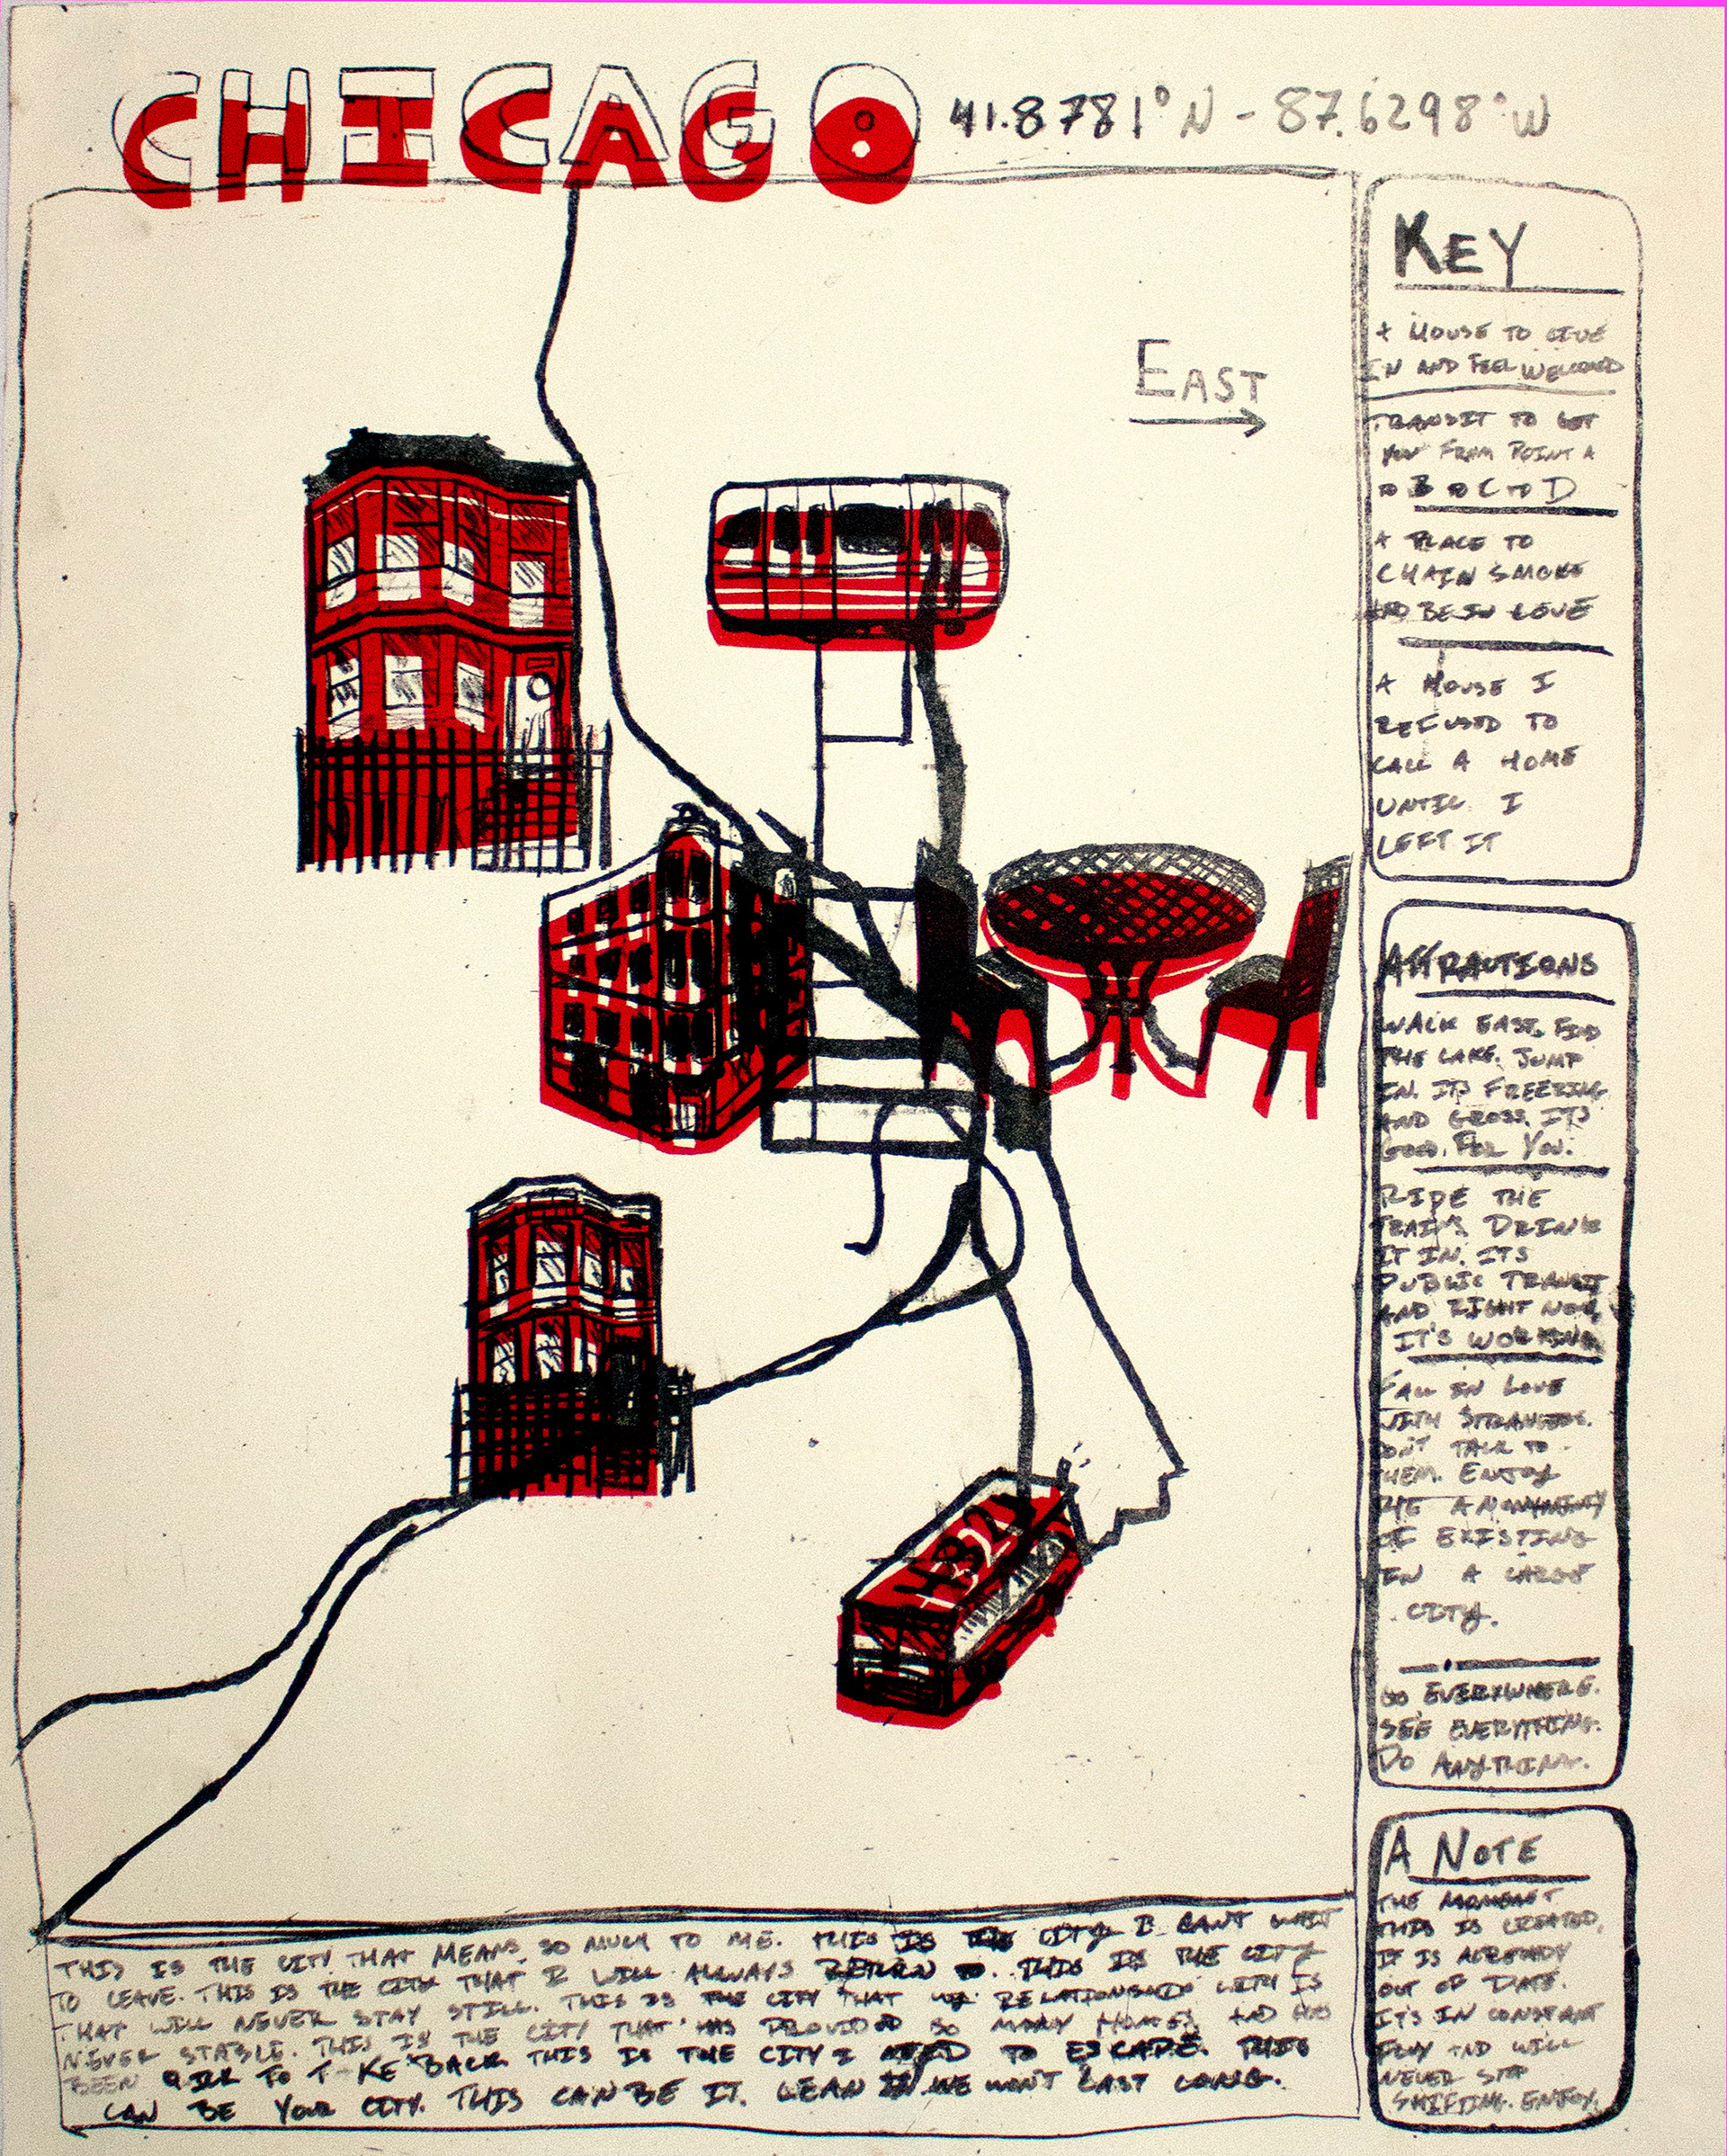 CHICAGO 41.8781°N - 87.6298°W
EAST
KEY
A HOUSE TO LIVE
IN AND FEEL WELCOMED
TRANSIT TO GET
YOU FROM POINT A
TO B TO C TO D
A PLACE TO
CHAIN SMOKE
AND BE IN LOVE
A HOUSE I
REFUSED TO
CALL A HOME
UNTIL I
LEFT IT
ATTRACTIONS
WALK EAST. FIND
THE LAKE. JUMP
IN. ITS FREEZING
AND GROSS. ITS
GOOD. FOR YOU.
RIDE THE
TRAIN. DRINK
IT IN. ITS
PUBLIC TRANSIT
AND RIGHT NOW,
IT'S WORKING.
FALL IN LOVE
WITH STRANGERS.
DON'T TALK TO
THEM. ENJOY
THE ANONYMITY
OF EXISTING
IN A LARGE
CITY.
GO EVERYWHERE.
SEE EVERYTHING.
DO ANYTHING.
A NOTE
THE MOMENT
THIS IS CREATED,
IT IS ALREADY
OUT OF DATE.
IT'S IN CONSTANT
FLUX AND WILL
NEVER STOP
SHIFTING. ENJOY.
432
THIS IS THE CITY THAT MEANS SO MUCH TO ME. THIS IS THE CITY I CANT WAIT
TO LEAVE. THIS IS THE CITY THAT I WILL ALWAYS RETURN TO. THIS IS THE CITY
THAT WILL NEVER STAY STILL. THIS IS THE CITY THAT MY RELATIONSHIP WITH IS
NEVER STABLE. THIS IS THE CITY THAT HAS PROVIDED SO MANY HOMES AND HAS
BEEN QUICK TO TAKE BACK. THIS IS THE CITY I NEED TO ESCAPE. THIS
CAN BE YOUR CITY. THIS CAN BE IT. LEAN IN. WE WON'T LAST LONG.